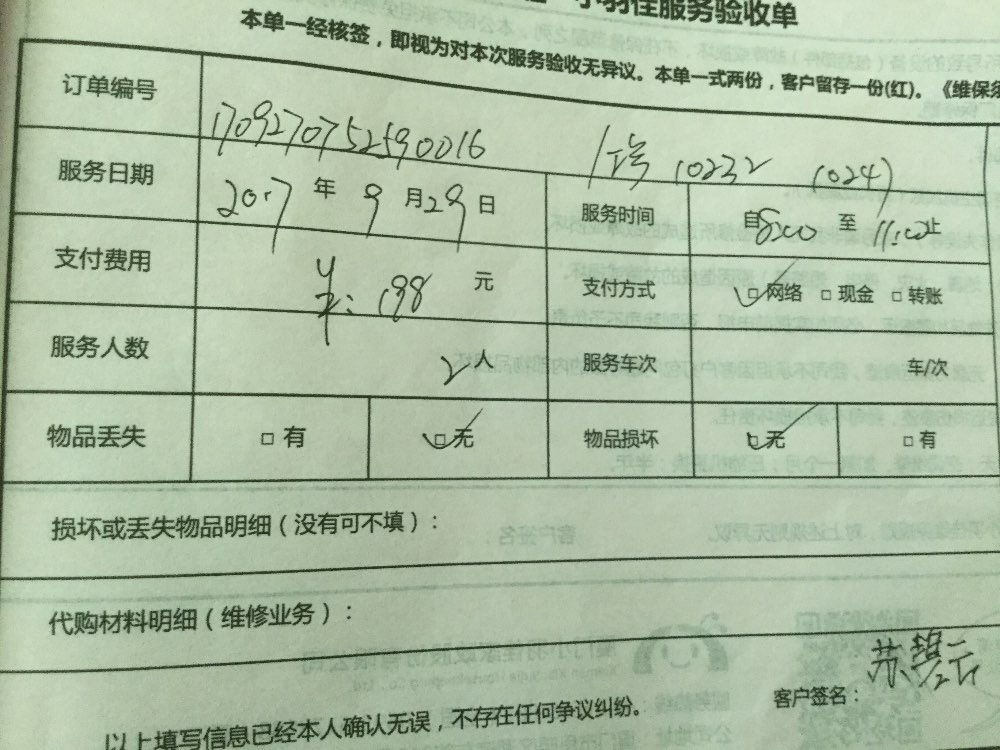 佳服务验收单
本单一经核签，即视为对本次服务验收无异议。本单一式两份，客户留存一份(红)。《维保须
订单编号 1709270752590016 1号 10232 (024)
服务日期 2017 年 9 月 29 日 服务时间 自 8:00 至 11:00 止
支付费用 ¥: 198 元 支付方式 □网络 □现金 □转账
服务人数 2人 服务车次 车/次
物品丢失 □ 有 □无 物品损坏 □无 □有
损坏或丢失物品明细（没有可不填）：
代购材料明细（维修业务）：
以上填写信息已经本人确认无误，不存在任何争议纠纷。 客户签名： 苏碧云